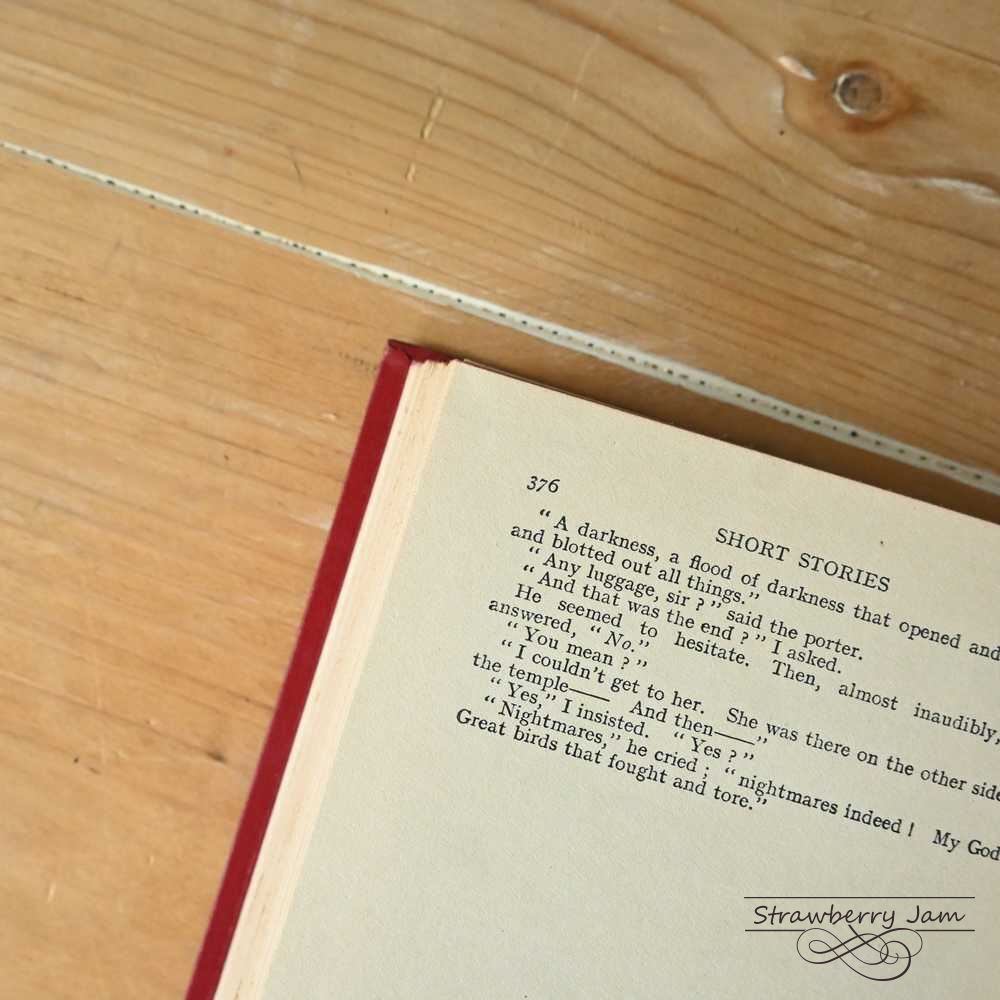 376
SHORT STORIES
“A darkness, a flood of darkness that opened and
and blotted out all things.”
“Any luggage, sir ? ” said the porter.
“And that was the end ? ” I asked.
He seemed to hesitate. Then, almost inaudibly,
answered, “No.”
“You mean ? ”
“I couldn’t get to her. She was there on the other side
the temple—— And then——”
“Yes,” I insisted. “Yes ? ”
“Nightmares,” he cried ; “nightmares indeed ! My God
Great birds that fought and tore.”
Strawberry Jam